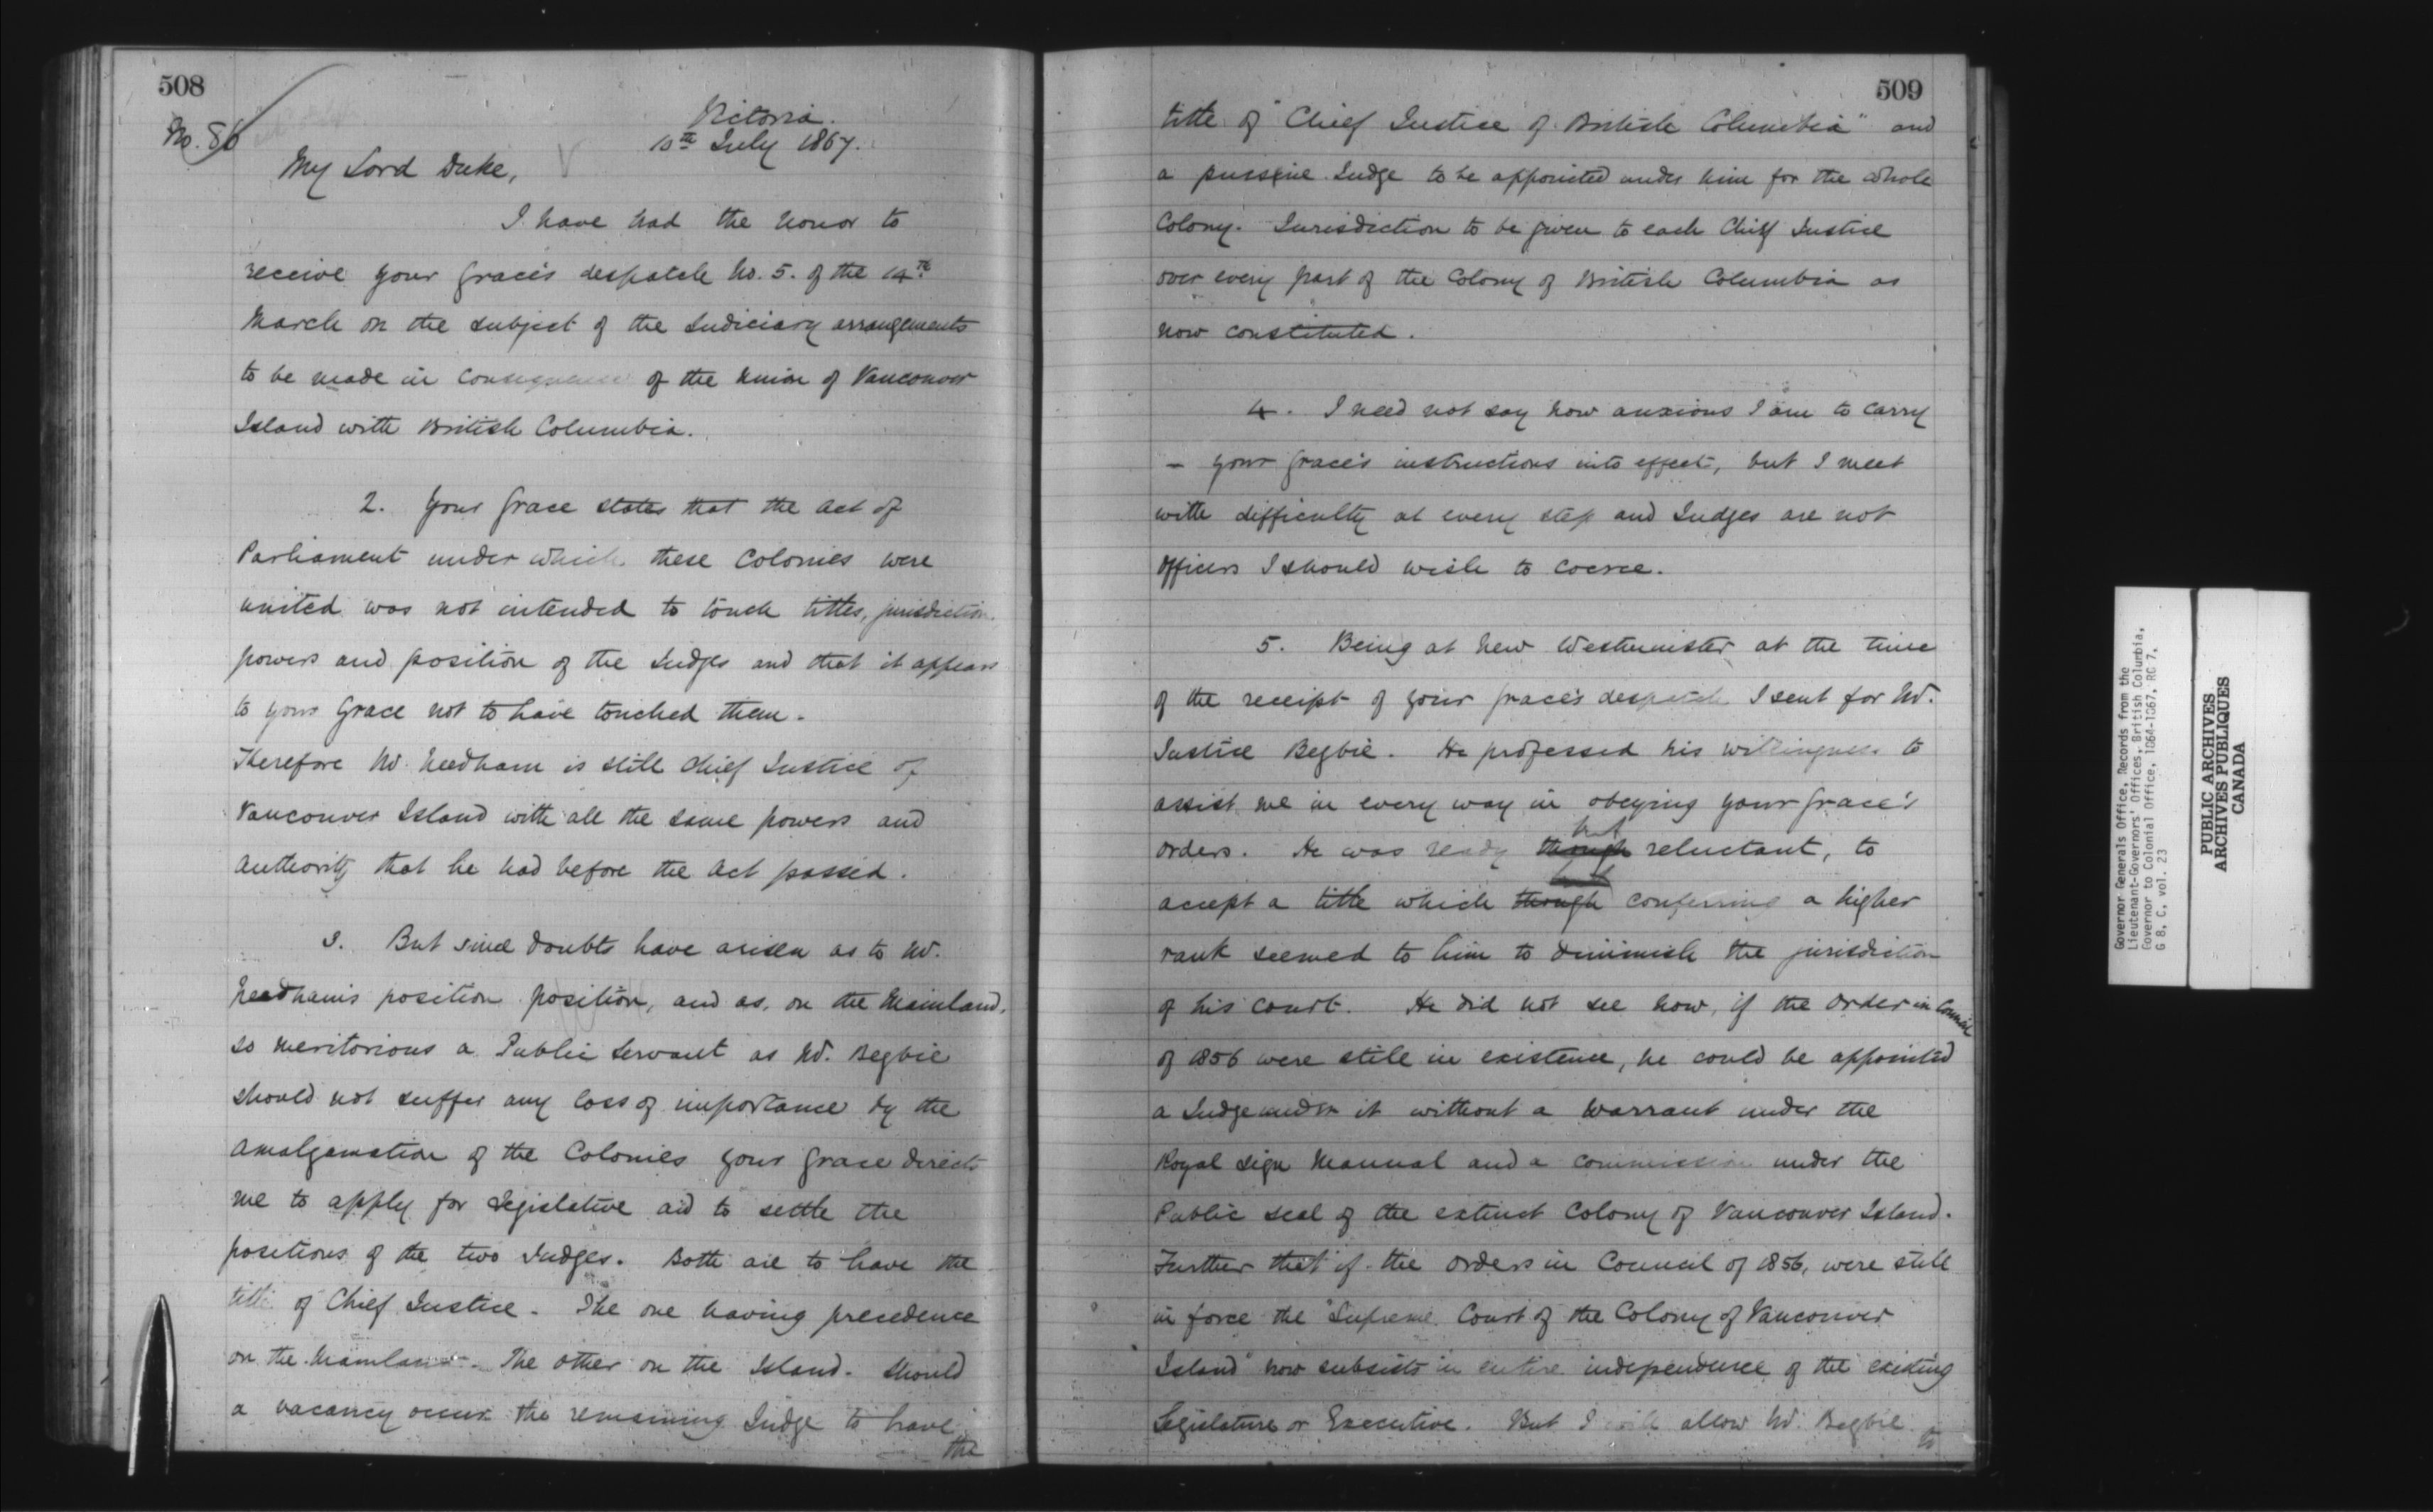 508
No. 86
Victoria.
10th July 1867.
My Lord Duke,
I have had the honor to
receive your Grace's despatch No. 5. of the 14th
March on the subject of the Judiciary arrangements
to be made in consequence of the Union of Vancouver
Island with British Columbia.
2. Your Grace states that the Act of
Parliament under which these Colonies were
united was not intended to touch titles, jurisdiction
powers and position of the Judges and that it appears
to your Grace not to have touched them.
Therefore Mr. Needham is still Chief Justice of
Vancouver Island with all the same powers and
authority that he had before the Act passed.
3. But since doubts have arisen as to Mr.
Needham's position position, and as, on the Mainland,
so meritorious a Public Servant as Mr. Begbie
should not suffer any loss of importance by the
amalgamation of the Colonies your Grace directs
me to apply for Legislative aid to settle the
positions of the two Judges. Both are to have the
title of Chief Justice. The one having precedence
on the Mainland. The other on the Island. Should
a vacancy occur the remaining Judge to have
the
509
title of "Chief Justice of British Columbia" and
a puisne Judge to be appointed under him for the whole
Colony. Jurisdiction to be given to each Chief Justice
over every part of the Colony of British Columbia as
now constituted.
4. I need not say how anxious I am to carry
- your Grace's instructions into effect, but I meet
with difficulty at every step and Judges are not
officers I should wish to coerce.
5. Being at New Westminster at the time
of the receipt of your Grace's despatch I sent for Mr.
Justice Begbie. He professed his willingness to
assist me in every way in obeying your Grace's
but
orders. He was ready though reluctant, to
accept a title which though conferring a higher
rank seemed to him to diminish the jurisdiction
of his court. He did not see how, if the Order in Council
of 1856 were still in existence, he could be appointed
a Judge under it without a Warrant under the
Royal Sign Manual and a commission under the
Public Seal of the extinct Colony of Vancouver Island.
Further that if the Orders in Council of 1856, were still
in force the "Supreme Court of the Colony of Vancouver
"Island" now subsists in entire independence of the existing
Legislature or Executive. But I will allow Mr. Begbie
to
Governor Generals Office, Records from the
Lieutenant-Governors' Offices, British Columbia,
Governor to Colonial Office, 1864-1867, RG 7,
G 8, C, vol. 23
PUBLIC ARCHIVES
ARCHIVES PUBLIQUES
CANADA